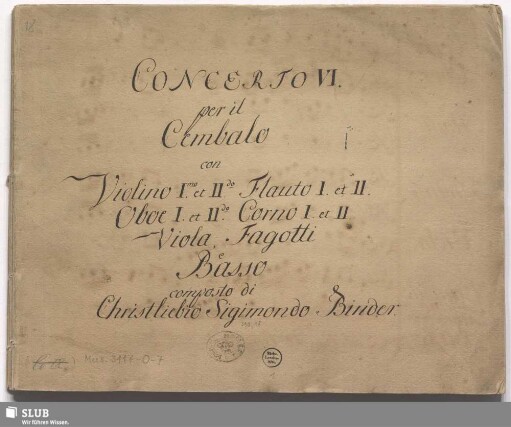 CONCERTO VI.
per il
Cembalo
con
Violino I.mo et II.do Flauto I. et II.
Oboe I. et II.do Corno I. et II
Viola, Fagotti
e
Basso
composto di
Christliebio Sigimondo Binder.
Mus. 3114-O-7
SLUB
Wir führen Wissen.